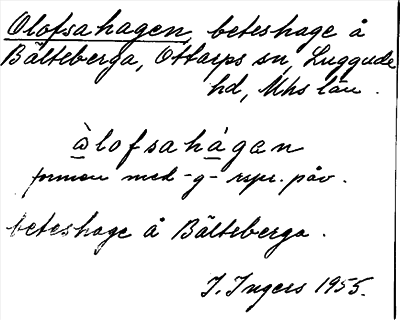 Olofsahagen, beteshage å
Bälteberga, Ottarps sn, Luggude
hd, Mhs län.
òlofsahágen
formen med -g- rspr. påv.
beteshage å Bälteberga.
I. Ingers 1955.